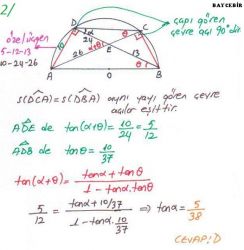 BAYÇEBİR
2/
özel üçgen
5-12-13
10-24-26
çapı gören
çevre açı 90° dir.
D
C
α
24
10
26
α+θ
E
13
θ
θ
A
O
B
s(DCA) = s(DBA) aynı yayı gören çevre
açılar eşittir.
ADE de tan(α+θ) = 10/24 = 5/12
ADB de tanθ = 10/37
tan(α+θ) = tanα + tanθ / 1 - tanα.tanθ
5/12 = tanα + 10/37 / 1 - tanα.10/37 ⇒ tanα = 5/38
CEVAP: D